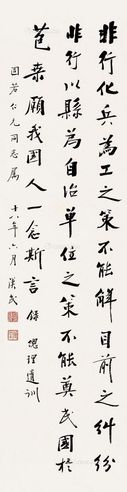 非行化兵為工之策不能解目前之糾紛
非行以縣為自治單位之策不能奠民國於
苞桑願我國人一念斯言 錄 總理遺訓
固若仁兄同志屬 十八年六月 漢民